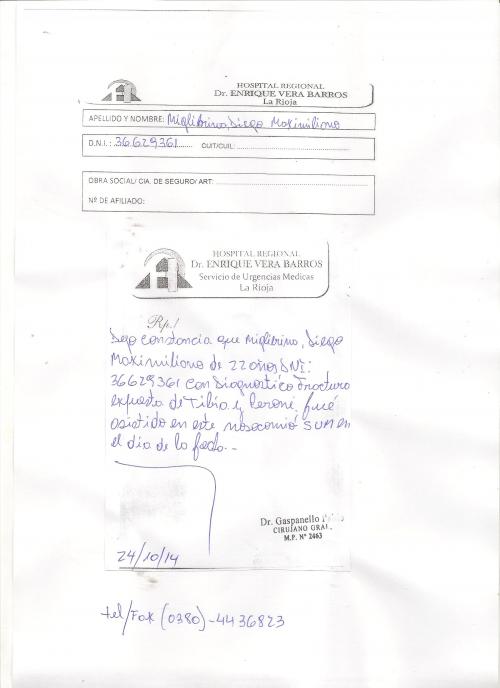 HOSPITAL REGIONAL
Dr. ENRIQUE VERA BARROS
La Rioja
APELLIDO Y NOMBRE: Miglibrino, Diego Maximiliano
D.N.I.: 36629361 CUIT/CUIL:
OBRA SOCIAL/ CIA. DE SEGURO/ ART:
Nº DE AFILIADO:
HOSPITAL REGIONAL
Dr. ENRIQUE VERA BARROS
Servicio de Urgencias Medicas
La Rioja
Rp./
Dejo constancia que Miglibrino, Diego
Maximiliano de 22 años DNI:
36629361 con Diagnostico Fractura
expuesta de Tibia y Peroné, fué
asistido en este nosocomió SUM en
el dia de la fecha.-
Dr. Gaspanello
CIRUJANO GRAL.
M.P. Nº 2463
24/10/14
tel/Fax (0380)-4436823